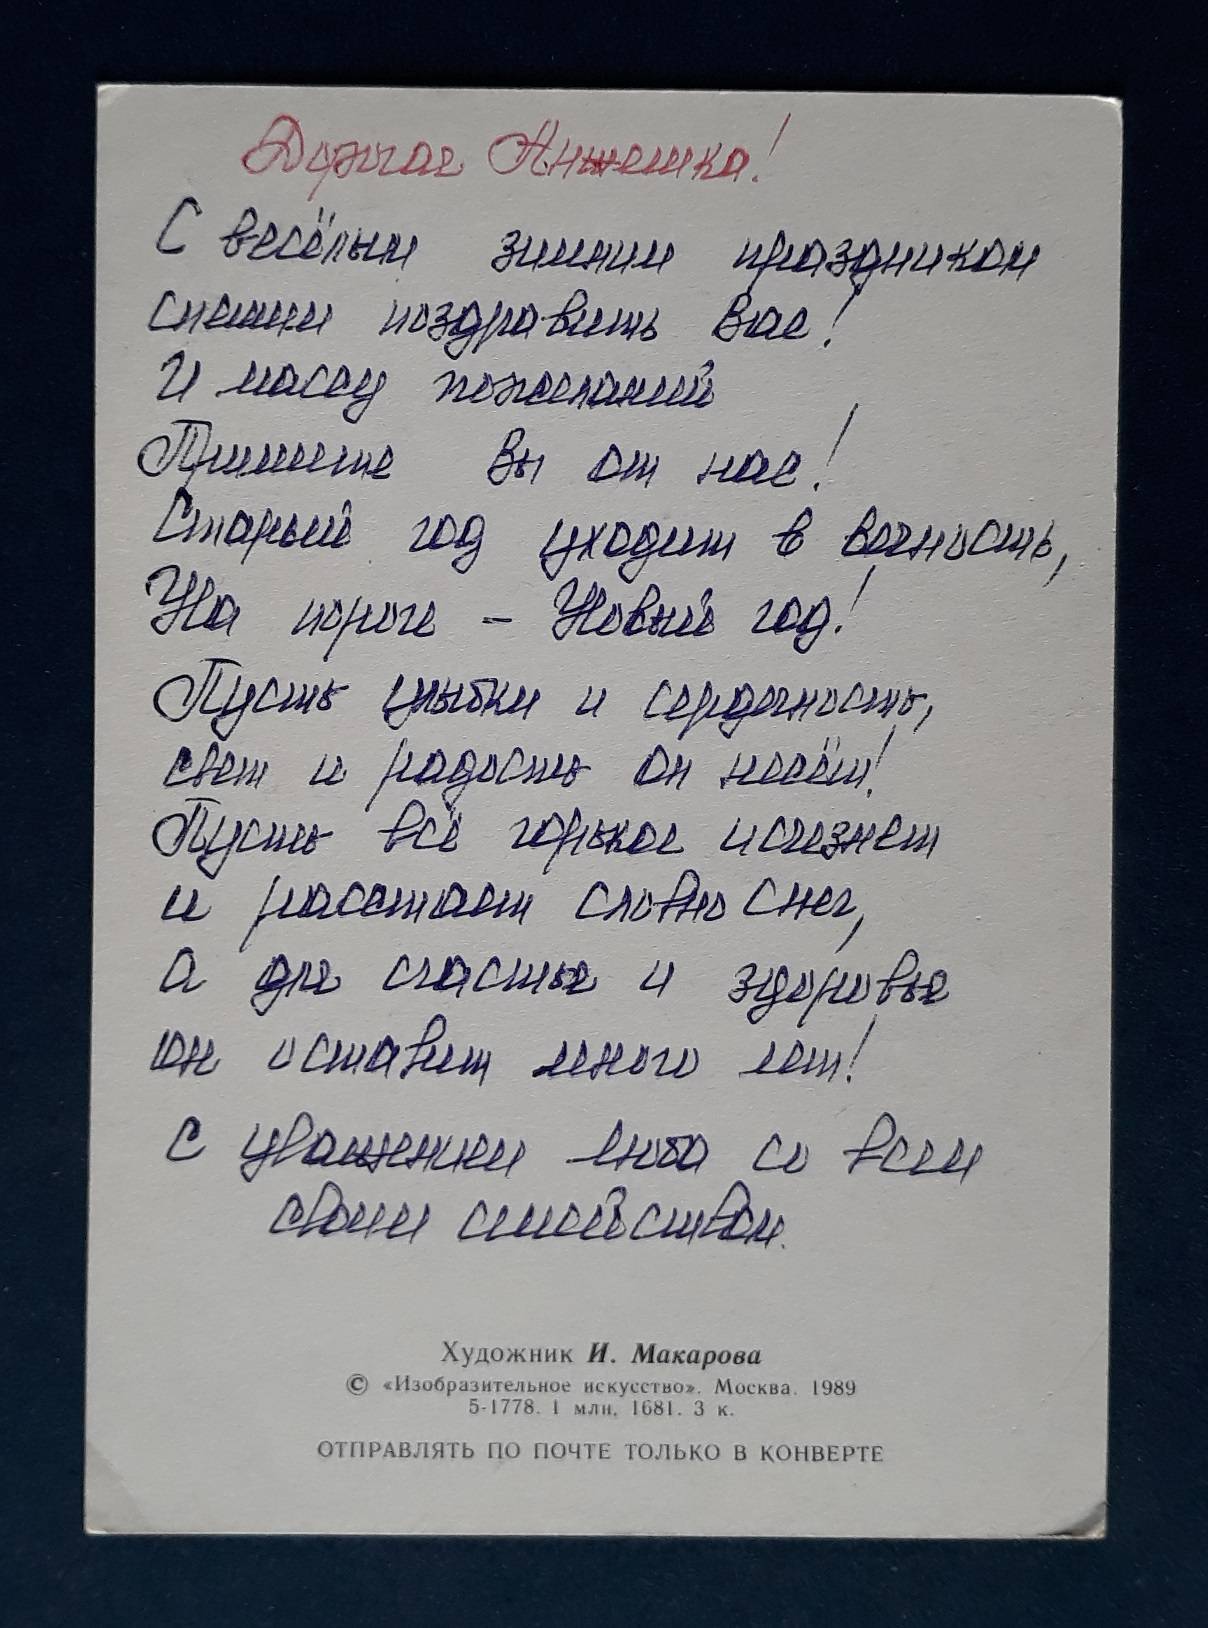 Дорогая Анжешка!
С весёлым зимним праздником
спешим поздравить Вас!
И массу пожеланий
Примите Вы от нас!
Старый год уходит в вечность,
На пороге - Новый год!
Пусть улыбки и сердечность,
свет и радость он несёт!
Пусть всё горькое исчезнет
и расстает словно снег,
А для счастья и здоровья
он оставит много лет!
С уважением Люба со всем
своим семейством.
Художник И. Макарова
© «Изобразительное искусство». Москва. 1989
5-1778. 1 млн. 1681. 3 к.
ОТПРАВЛЯТЬ ПО ПОЧТЕ ТОЛЬКО В КОНВЕРТЕ